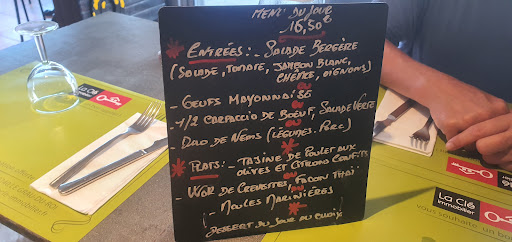 MENU DU JOUR
16,50€
ENTRÉES : - SALADE BERGÈRE
(SALADE, TOMATE, JAMBON BLANC,
CHÈVRE, OIGNONS)
OU
- OEUFS MAYONNAISE
OU
- 1/2 CARPACCIO DE BOEUF, SALADE VERTE
OU
DUO DE NEMS (LÉGUMES. PORC)
PLATS : - TAJINE DE POULET AUX
OLIVES ET CITRONS CONFITS
OU
- WOK DE CREVETTES, FAÇON THAÏ
OU
(- MOULES MARINIÈRES)
DESSERT DU JOUR AU CHOIX
La Clé
immobilier
La Clé
immobilier
vous souhaite un bon